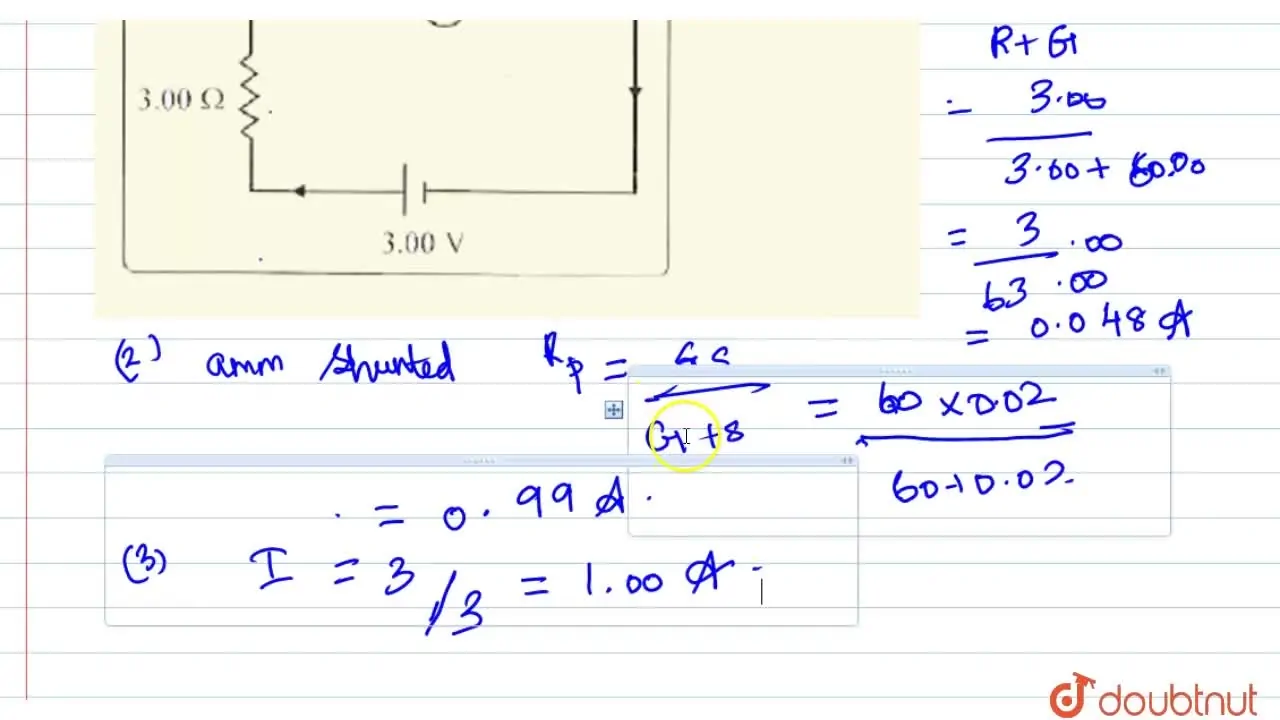 R + G
= 3.00
3.00 + 60.00
= 3.00
63.00
= 0.048 A
3.00 Ω
3.00 V
(2) amm shunted Rp = G S
G + S
= 60 x 0.02
60 + 0.02
= 0.99 A.
(3) I = 3/3 = 1.00 A
doubtnut